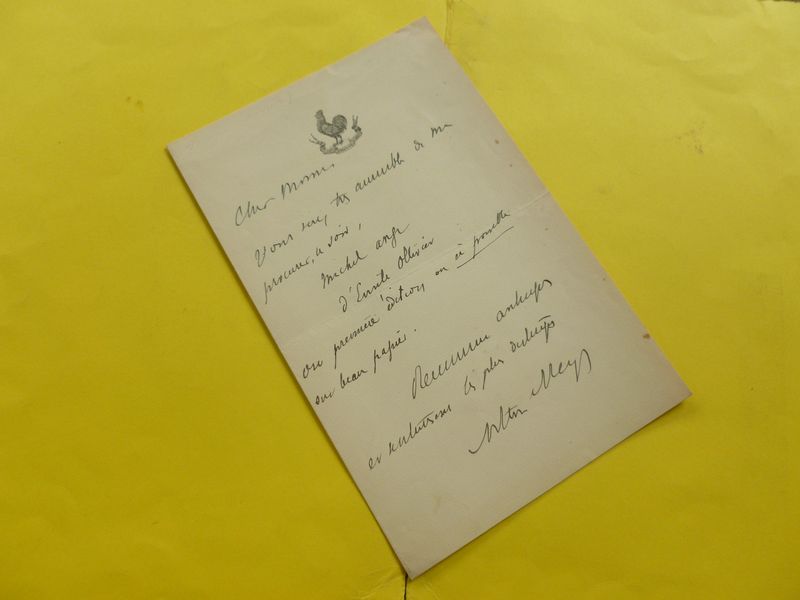 Cher Monsieur
Vous serez très aimable de me
procurer, ce soir,
Michel Ange
d'Emile Ollivier
en première édition ou si possible
sur beau papier.
Remerciements anticipés
et sentiments les plus distingués
Arthur Meyer